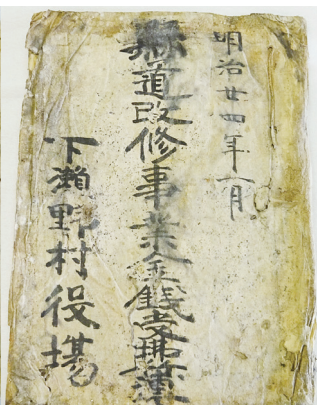 明治廿四年一月
縣道改修事業金銭受拂簿
下瀬野村役場